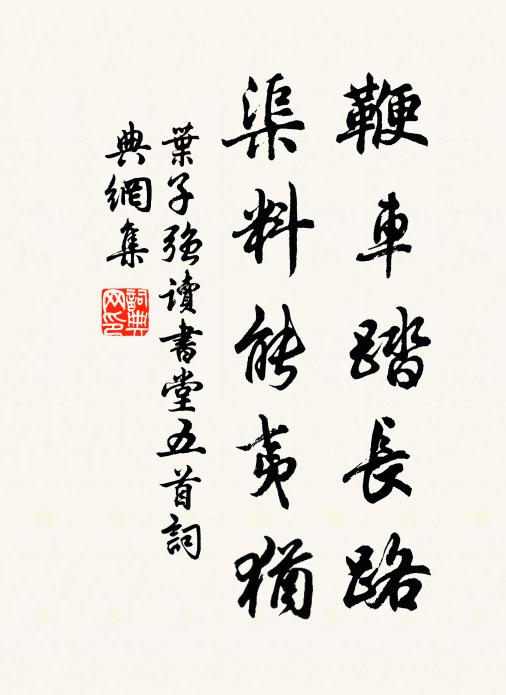 鞭車踏長路
渠料能夷猶
葉子強讀書堂五首詞
典網集
詞典網印